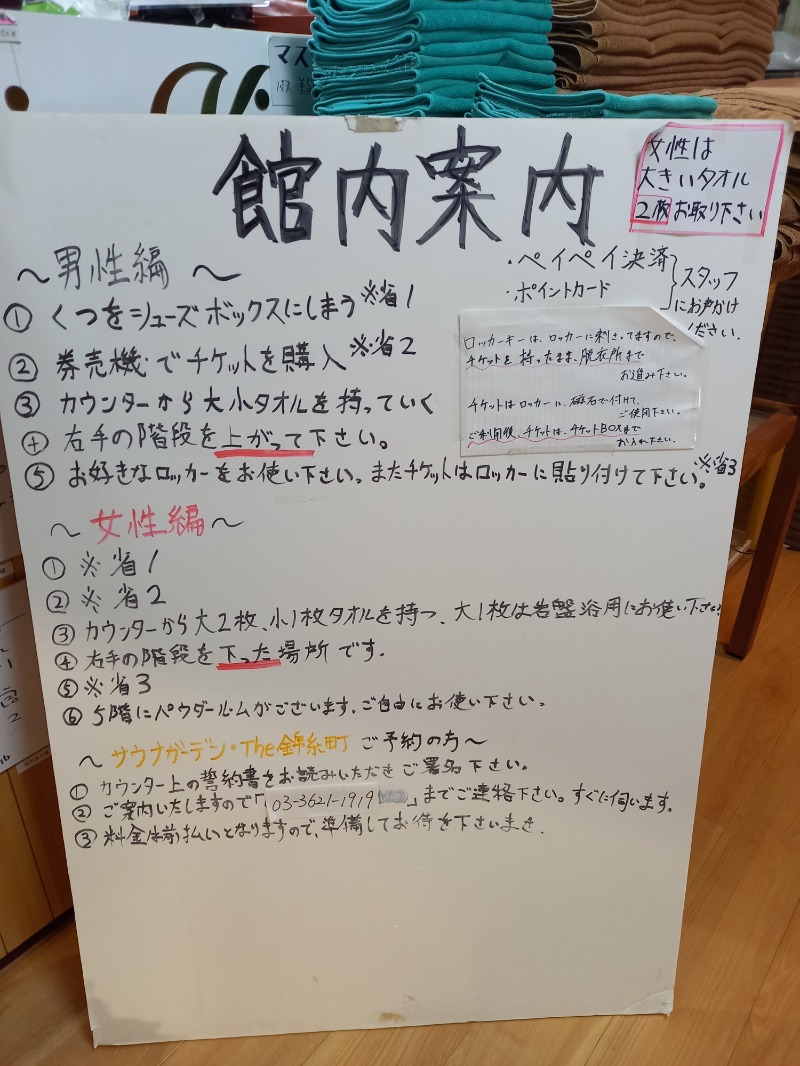 マス
女性は
大きいタオル
2枚お取り下さい
館内案内
・ペイペイ決済
・ポイントカード
スタッフ
にお声かけ
ください.
～男性編～
① くつをシューズボックスにしまう ※省1
② 券売機でチケットを購入 ※省2
③ カウンターから大小タオルを持っていく
④ 右手の階段を上がって下さい。
⑤ お好きなロッカーをお使い下さい。またチケットはロッカーに貼り付けて下さい。※省3
ロッカーキーは、ロッカーに刺さってますので、
チケットを持ったまま、脱衣所まで
お進み下さい。
チケットはロッカーに、磁石で付けて、
ご使用下さい。
ご利用後、チケットは、チケットBOXまで
お入れ下さい。
～女性編～
① ※省1
② ※省2
③ カウンターから大2枚、小1枚タオルを持つ、大1枚は岩盤浴用にお使い下さい
④ 右手の階段を下った場所です.
⑤ ※省3
⑥ 5階にパウダールームがございます.ご自由にお使い下さい.
～サウナガーデン・The錦糸町 ご予約の方～
① カウンター上の誓約書をお読みいただきご署名下さい。
② ご案内いたしますので「03-3621-1919」までご連絡下さい。すぐに伺います。
③ 料金は前払いとなりますので、準備してお待を下さいませ.